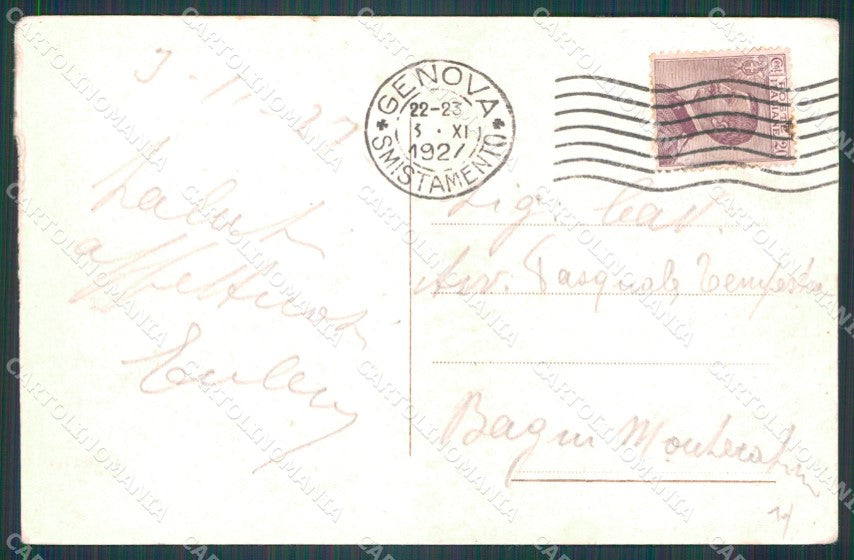 3-11-27
Saluti
affettuosi
GENOVA
22-23
3 · XI
1927
SMISTAMENTO
POSTE
ITALIANE
Sig. Cav.
Avv. Pasquale Tempesta
Bagni Montecatini
CARTOLINOMANIA